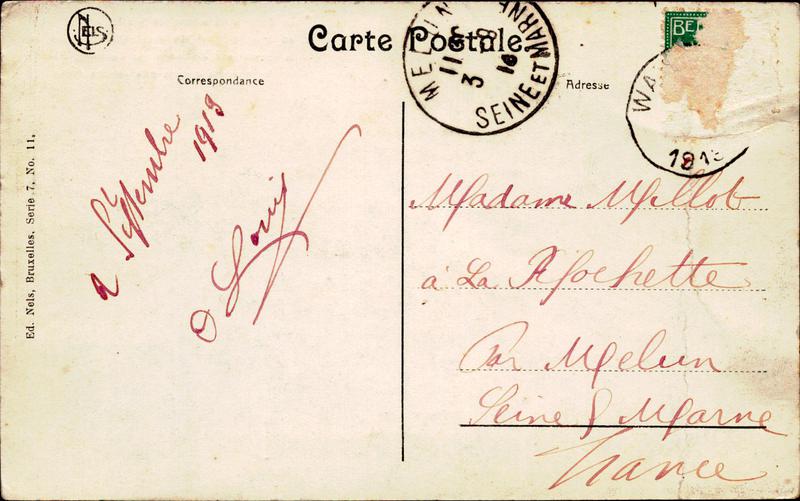 NELS
Carte Postale
BE
MELUN
11
3
SEINE ET MARNE
WA
1913
Correspondance
Adresse
2 Septembre
1913
Louis
Madame Millot
à La Rochette
Par Melun
Seine & Marne
France
Ed. Nels, Bruxelles. Serie 7, No. 11.